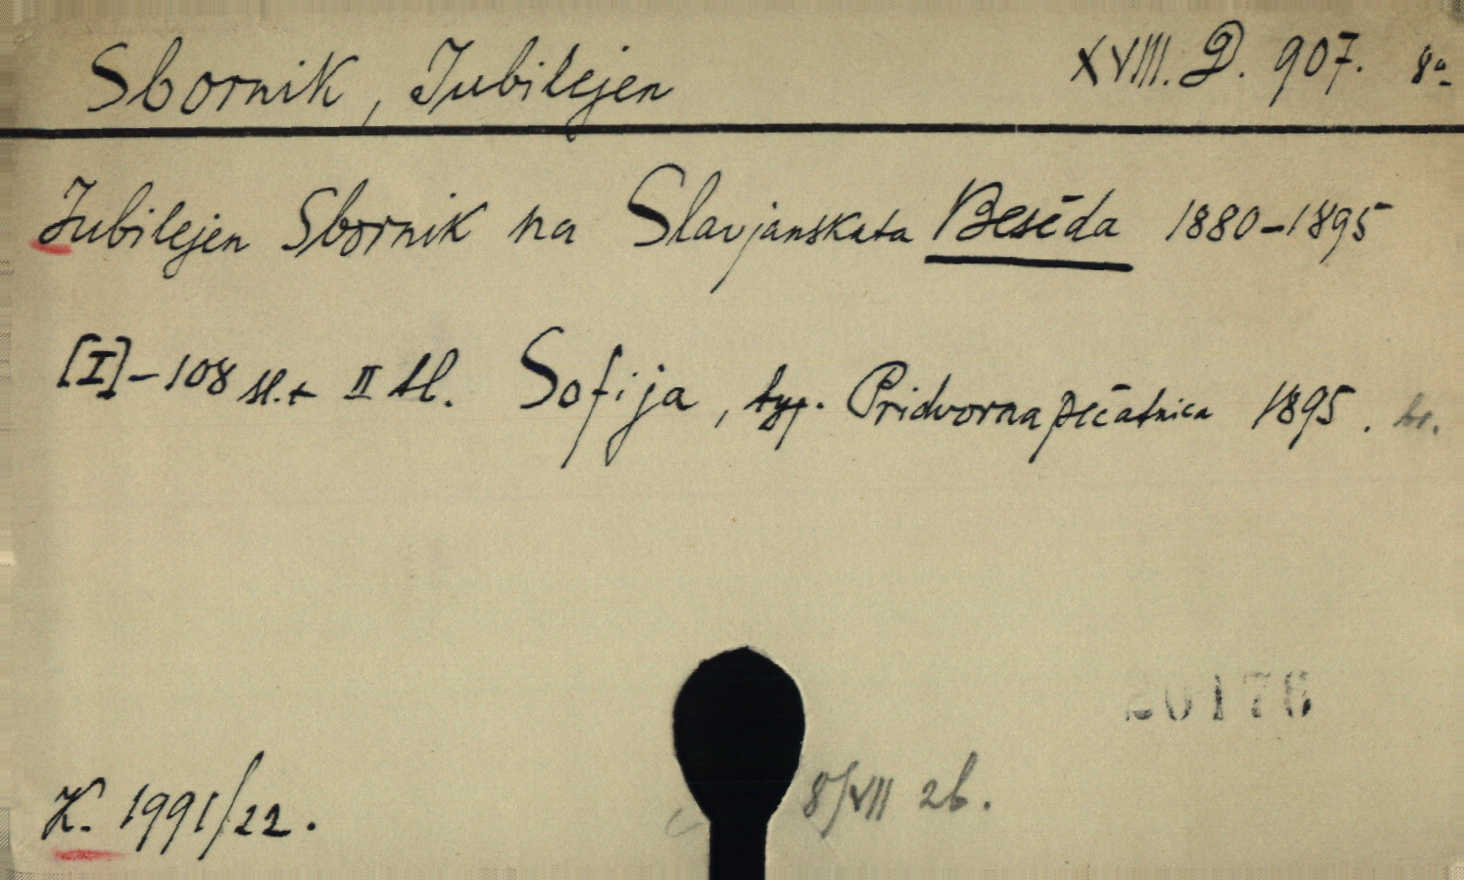 Sbornik, Jubilejen XVIII. D. 907. 8º
Jubilejen Sbornik na Slavjanskata Besěda 1880-1895
[I]-108 sl. + II tl. Sofija, typ. Pridvorna pečatnica 1895.
20176
K. 1991/22. 8/VII 26.